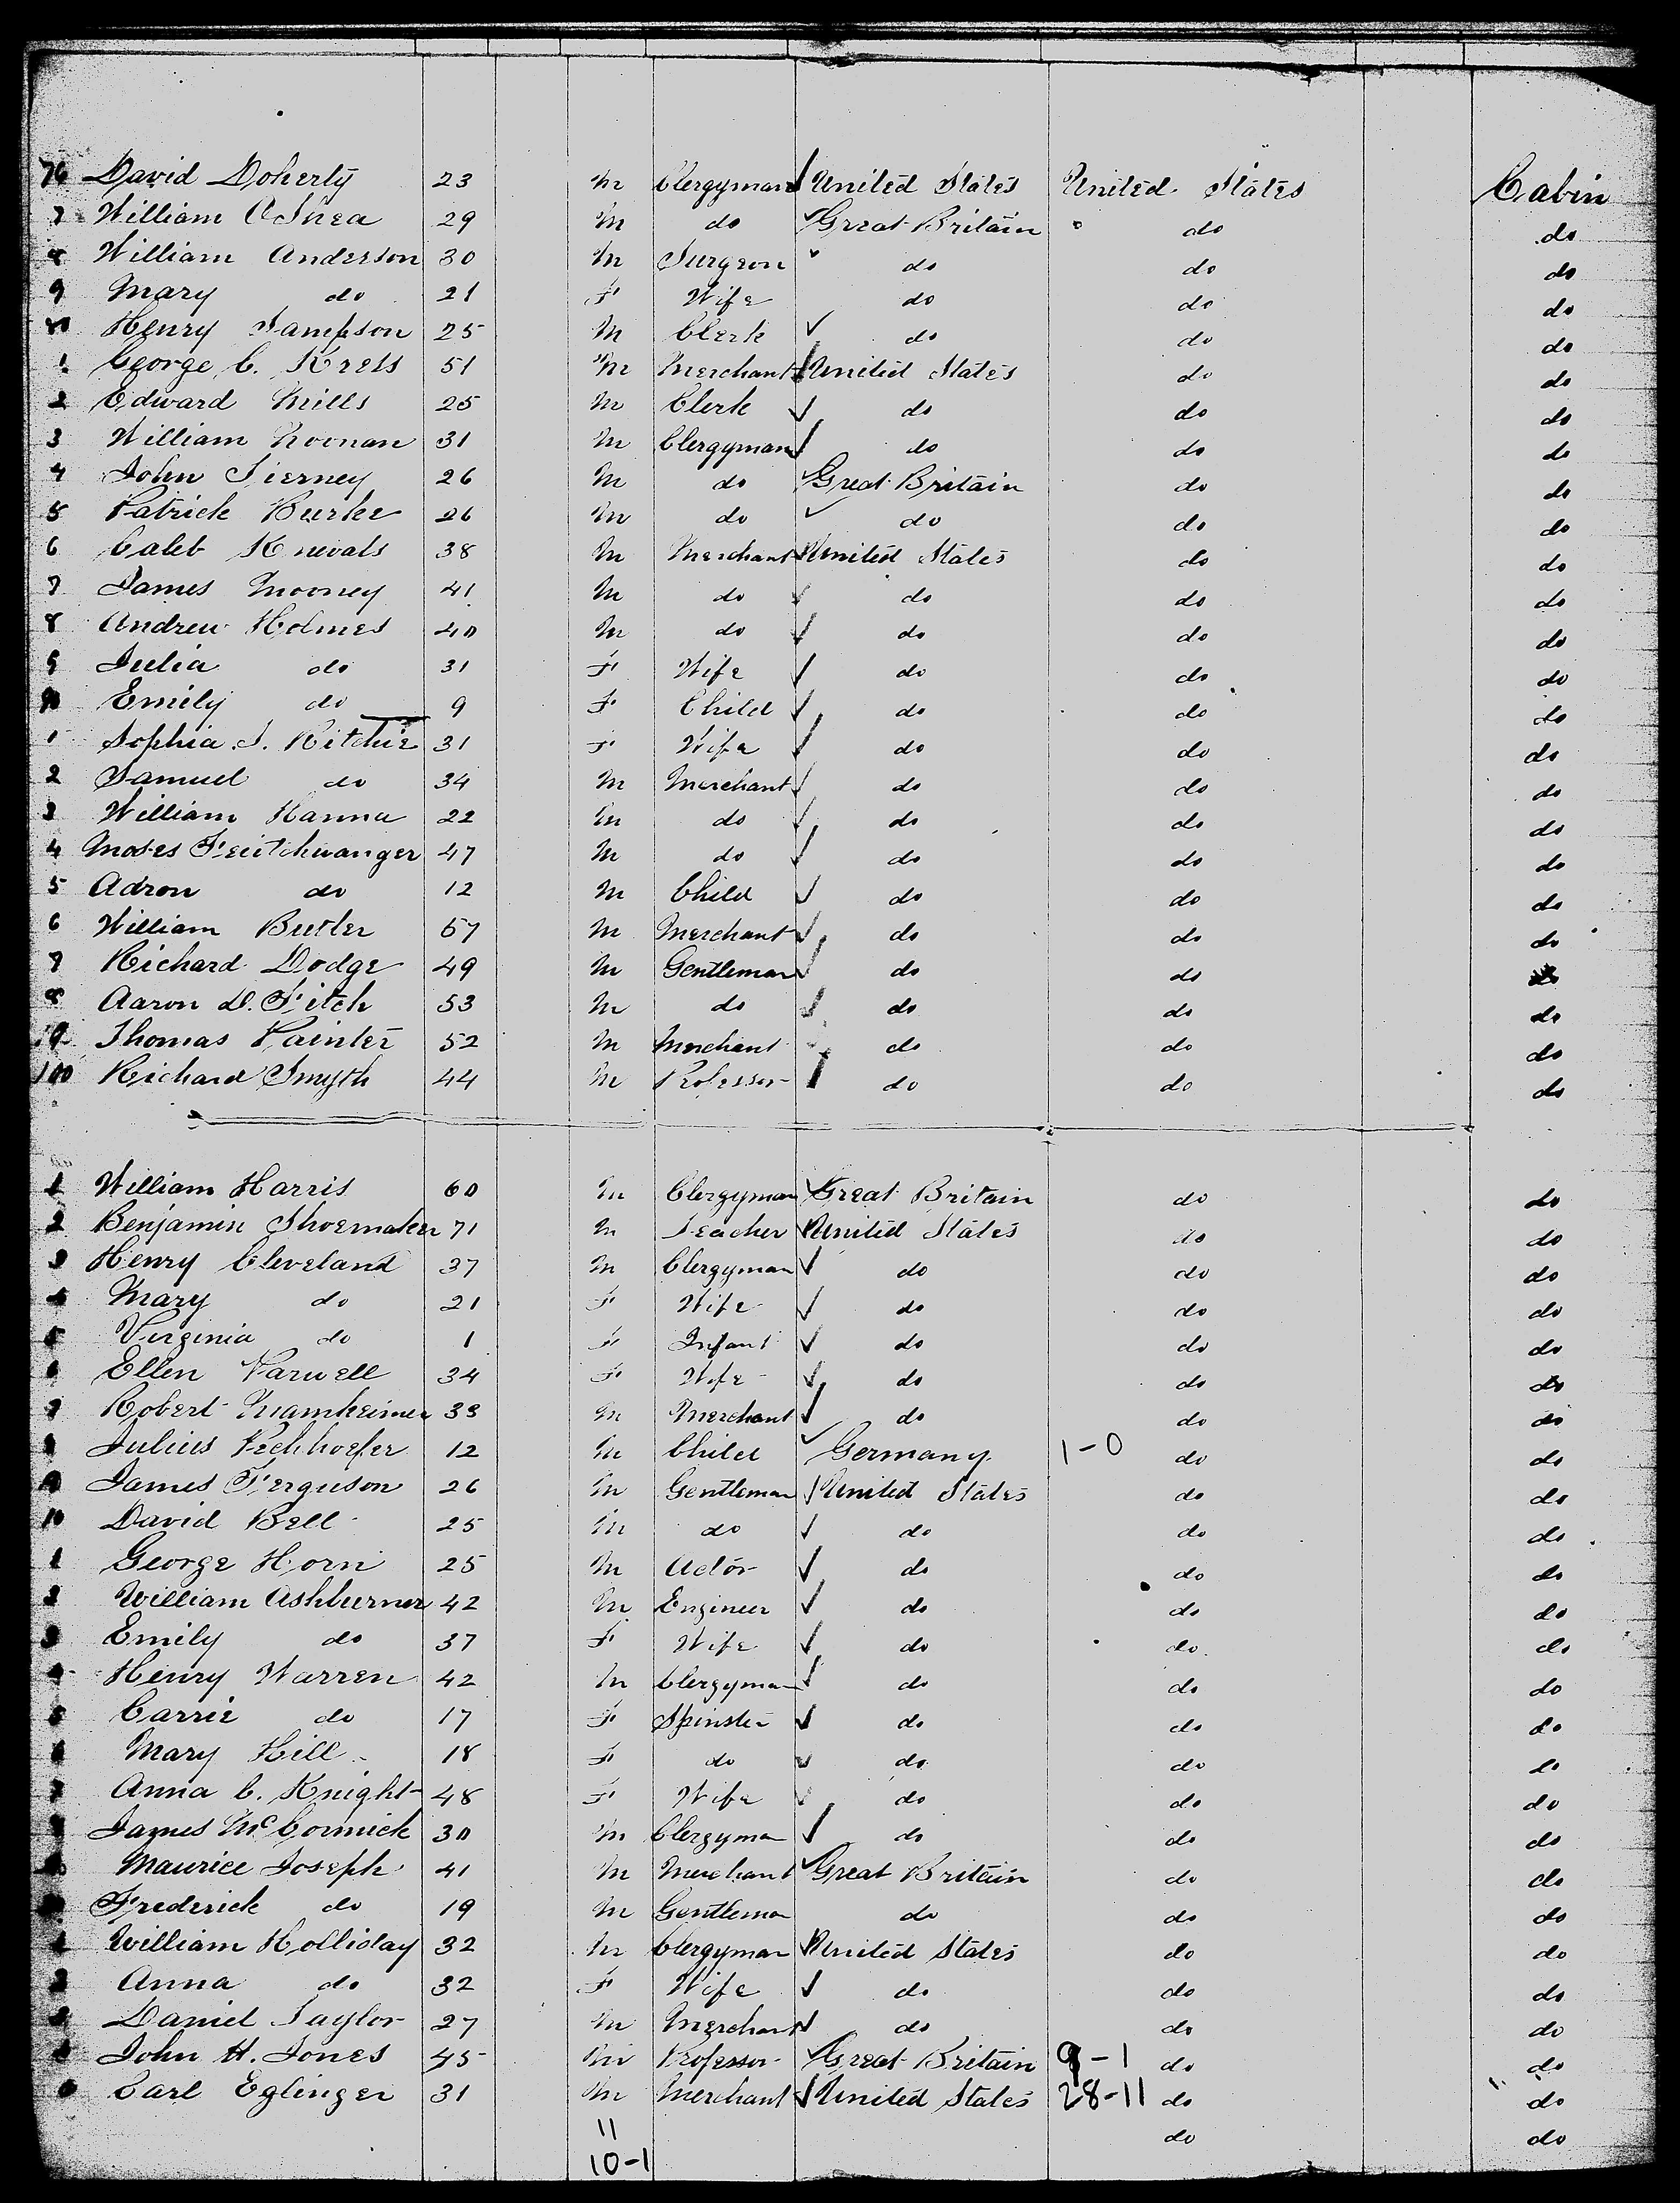 76 David Doherty 23 M Clergyman United States United States Cabin
7 William O'Shea 29 M do Great Britain do do
8 William Anderson 30 M Surgeon do do do
9 Mary do 21 F Wife do do do
Henry Sampson 25 M Clerk do do do
1 George C. Kress 51 M Merchant United States do do
2 Edward Mills 25 M Clerk do do do
3 William Noonan 31 M Clergyman do do do
4 John Tierney 26 M do Great Britain do do
5 Patrick Burke 26 M do do do do
6 Caleb Knevals 38 M Merchant United States do do
7 James Mooney 41 M do do do do
8 Andrew Holmes 40 M do do do do
9 Julia do 31 F Wife do do do
Emily do 9 F Child do do do
1 Sophia J. Ritchie 31 F Wife do do do
2 Samuel do 34 M Merchant do do do
3 William Hanna 22 M do do do do
4 Moses Feutchwanger 47 M do do do do
5 Adron do 12 M Child do do do
6 William Butler 57 M Merchant do do do
7 Richard Dodge 49 M Gentleman do do do
8 Aaron D. Fitch 53 M do do do do
9 Thomas Painter 52 M Merchant do do do
100 Richard Smyth 44 M Professor do do do
1 William Harris 60 M Clergyman Great Britain do do
2 Benjamin Shoemaker 71 M Teacher United States do do
3 Henry Cleveland 37 M Clergyman do do do
4 Mary do 21 F Wife do do do
5 Virginia do 1 F Infant do do do
6 Ellen Farwell 34 F Wife do do do
7 Robert Mamheimer 33 M Merchant do do do
8 Julius 12 M Child Germany 1-0 do do
9 James Ferguson 26 M Gentleman United States do do
10 David Bell 25 M do do do do
1 George Horn 25 M Actor do do do
2 William Ashburner 42 M Engineer do do do
3 Emily do 37 F Wife do do do
4 Henry Warren 42 M Clergyman do do do
5 Carrie do 17 F Spinster do do do
6 Mary Hill 18 F do do do do
7 Anna C. Knight 48 F Wife do do do
James McCormick 30 M Clergyman do do do
Maurice Joseph 41 M Merchant Great Britain do do
Frederick do 19 M Gentleman do do do
1 William Holliday 32 M Clergyman United States do do
2 Anna do 32 F Wife do do do
3 Daniel Taylor 27 M Merchant do do do
John H. Jones 45 M Professor Great Britain 9-1 do do
Carl Eglinger 31 M Merchant United States 28-11 do do
11 do do
10-1